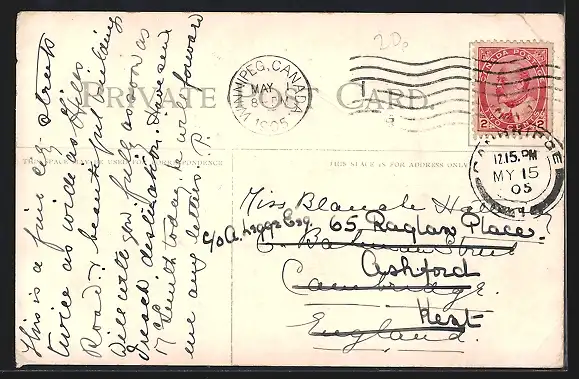 20p
WINNIPEG, CANADA
MAY 1
8
1905
PRIVATE POST CARD.
CANADA POSTAGE
2 2
CAMBRIDGE
12.15.PM
MY 15
05
THIS SPACE MAY BE USED FOR CORRESPONDENCE
THIS SPACE IS FOR ADDRESS ONLY
This is a fine city streets
twice as wide as Hills
Road & beautiful buildings
Will write you fully as soon as
I reach destination. Have sent
17 length today he will forward
me any letters P.
Miss Blanche
c/o A. Esq 65 Raglan Place
Ashford
Cambridge.
Kent
England.